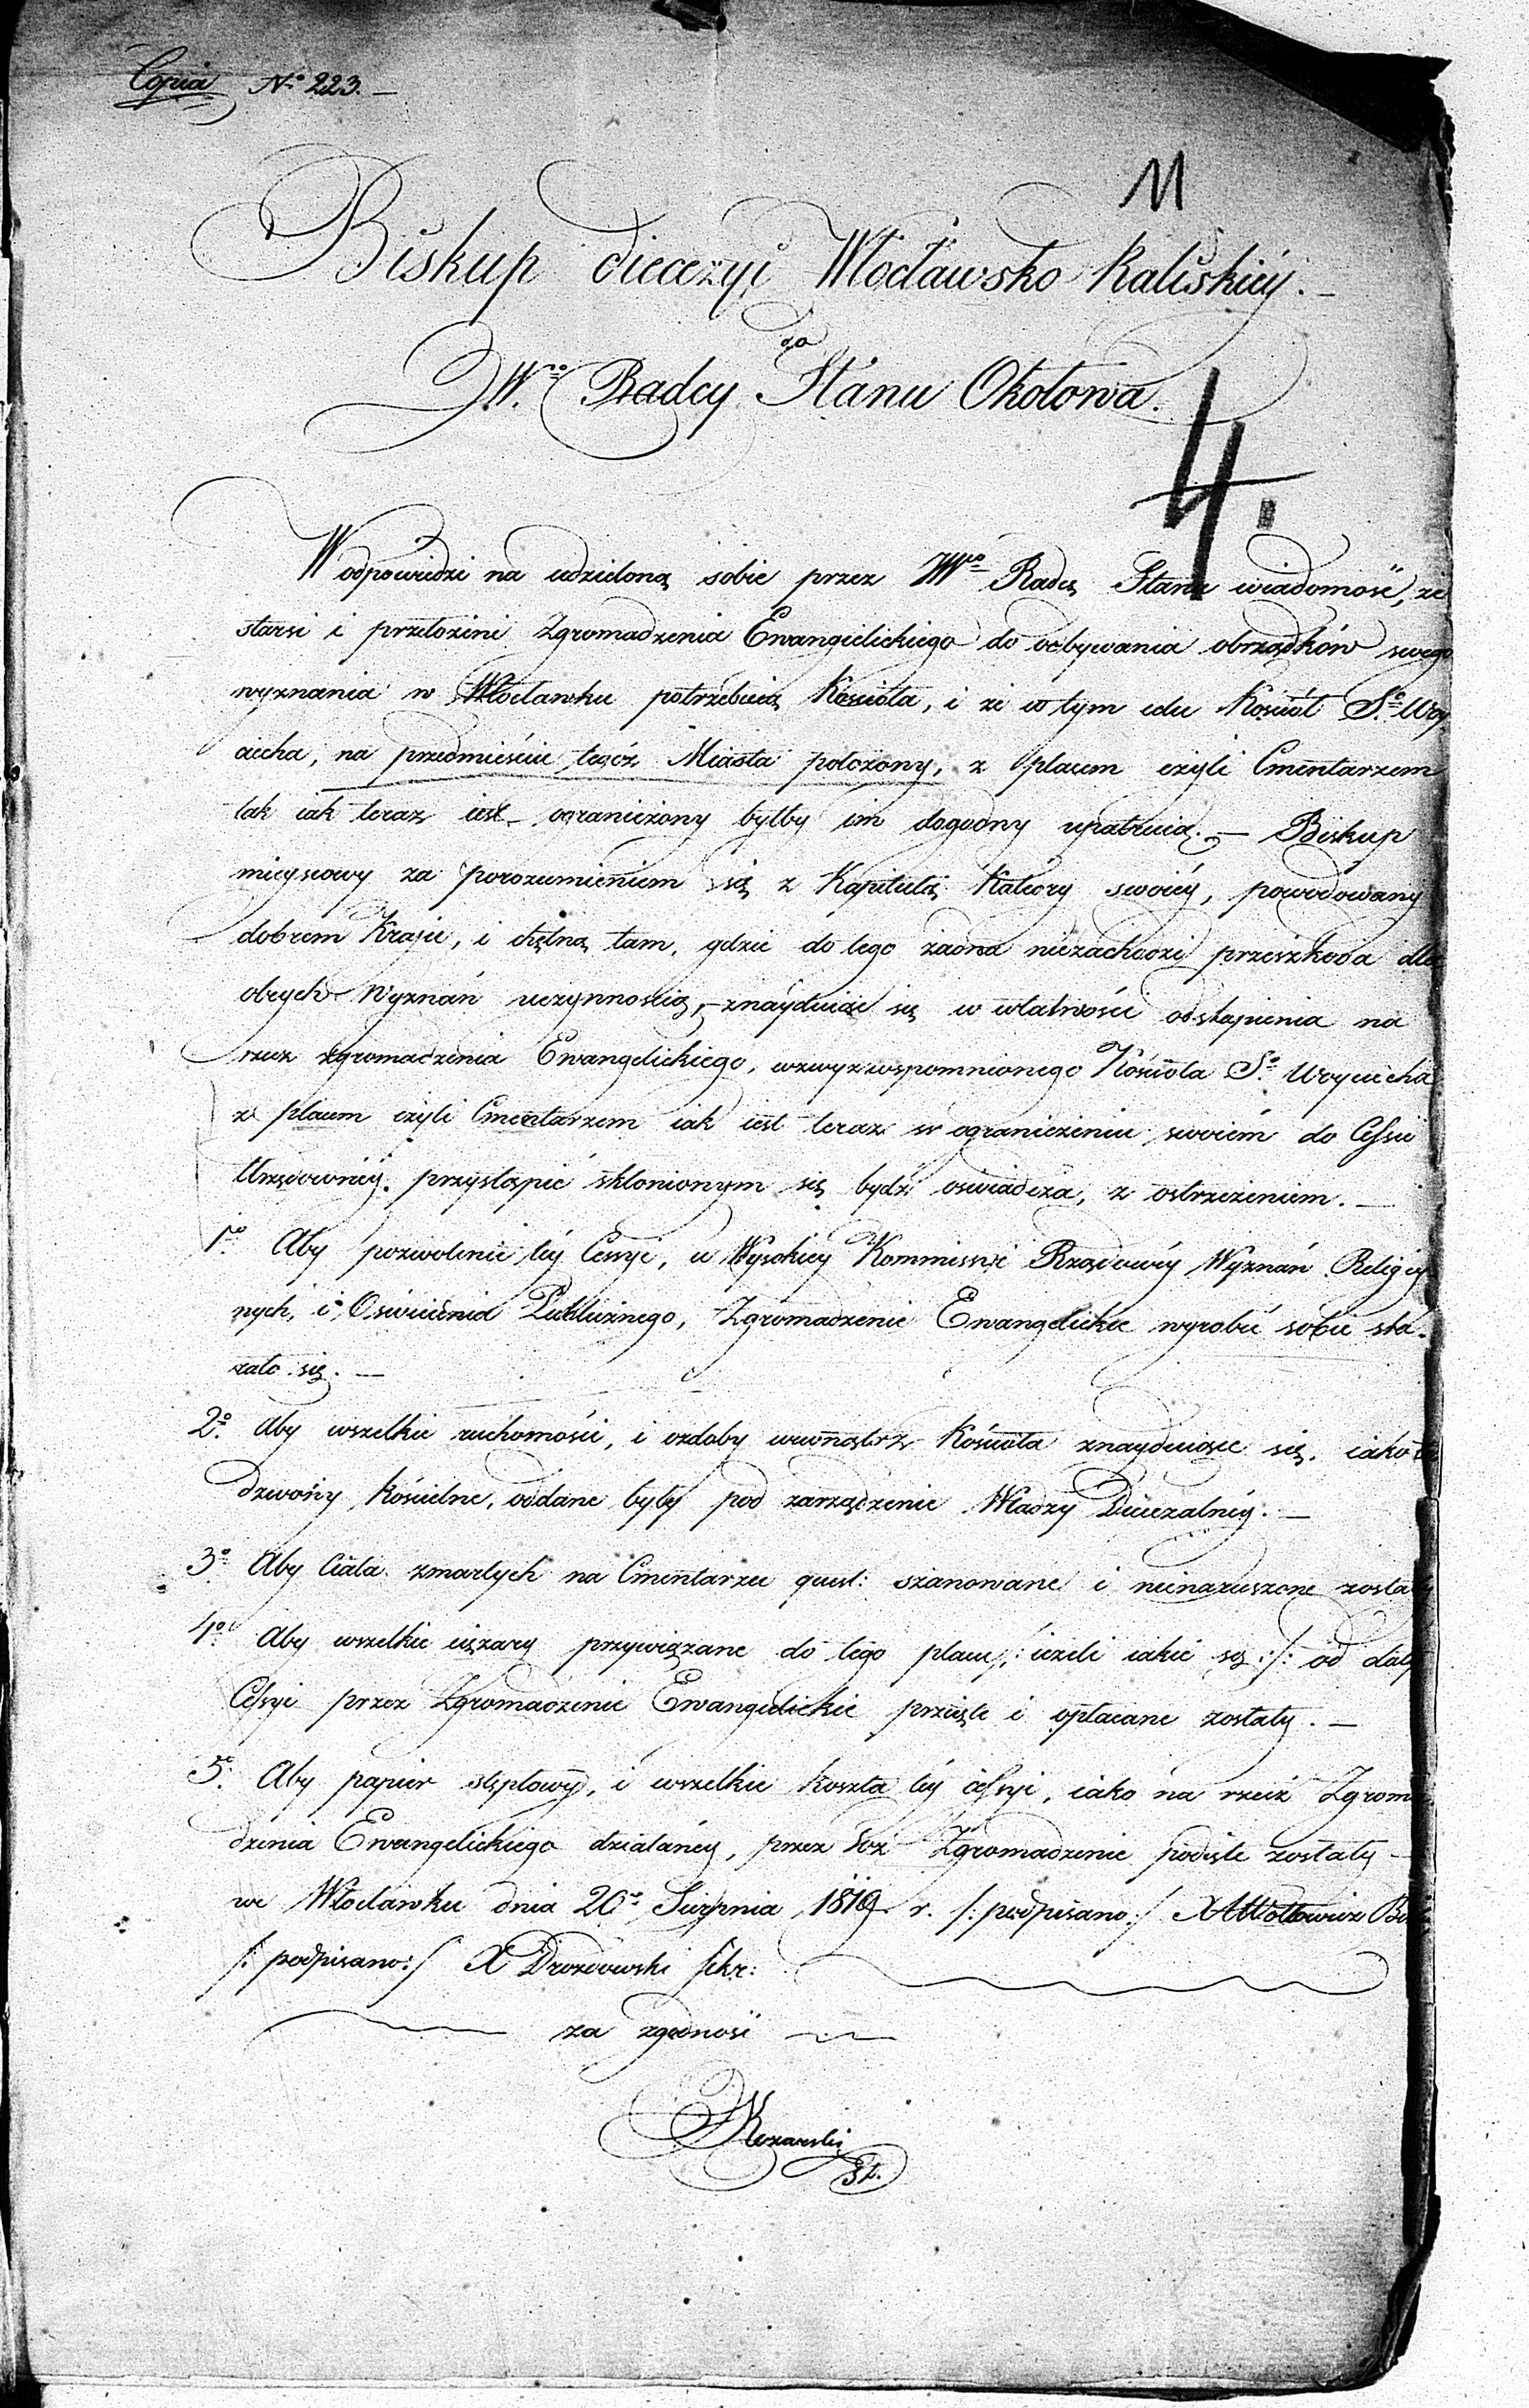 Copia No 223. —
11
Biskup diecezyi Włocławsko Kaliskiéy. —
do
JWgo Radcy Stanu Okołowa.
4.
W odpowiedzi na udzieloną sobie przez JWgo Radcę Stanu wiadomość, że
starsi i przełożeni Zgromadzenia Ewangielickiego do odbywania obrządków swego
wyznania w Włocławku potrzebuią Kościoła, i że w tym celu Kościół Sgo Woy-
ciecha, na przedmieściu tegóż Miasta położony, z placem czyli Cmentarzem
tak iak teraz iest ograniczony byłby im dogodny upatruią. — Biskup
mieyscowy za porozumieniem się z Kapitułą Katedry swoiéy, powodowany
dobrem Kraju, i chętną tam, gdzie do tego żadna niezachodzi przeszkoda dla
obcych Wyznań uczynnością, znayduiąc się w łatwości odstąpienia na
rzecz zgromadzenia Ewangelickiego, wzwyż wspomnionego Kościoła Sgo Woyciecha
z placem czyli Cmentarzem iak iest teraz w ograniczeniu swoiém do Cessii
Urzędownéy przystąpić skłonionym się bydź oświadcza, z ostrzeżeniem. —
1o Aby pozwolenie téy Cessyi, u Wysokiey Kommissyi Rządowéy Wyznań Religiy-
nych, i Oświecenia Publicznego, Zgromadzenie Ewangelickie wyrobić sobie sta-
rało się. —
2o. Aby wszelkie ruchomości, i ozdoby wewnątrz Kościoła znayduiące się, iako
dzwony kościelne, oddane były pod zarządzenie Władzy Diecezalnéy. —
3o Aby Ciała zmarłych na Cmentarzu quest: szanowane i nienaruszone zostały
4o Aby wszelkie ciężary przywiązane do tego placu /: ieżeli iakie są :/: od daty
Cessyi przez Zgromadzenie Ewangielickie przyięte i opłacane zostały. —
5o. Aby papier stęplowy, i wszelkie koszta téy cessyi, iako na rzecz Zgroma-
dzenia Ewangelickiego działanéy, przez toż Zgromadzenie podięte zostały —
we Włocławku dnia 20go Sierpnia 1819 r. /: podpisano :/ X A Wołłowicz
/: podpisano :/ X Drozdowski Sekr:
za zgodność